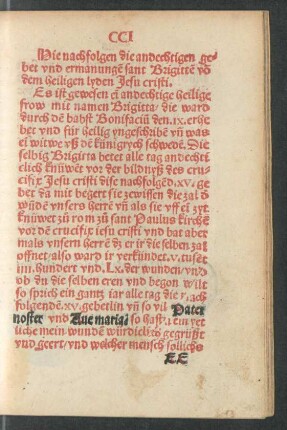 CCI
Hie nachfolgen die andechtigen ge-
bet vnd ermanungē sant Brigittē vō
dem heiligen lyden Jesu cristi.
Es ist gewesen ei andechtige heilige
frow mit namen Brigitta/ die ward
durch dē babst Bonifaciū den .ix. erhe
bet vnd für heilig yngeschribē vn̄ was
ei witwe vß dē künigrych schwedē. Die
selbig Brigitta betet alle tag andechti
clich knüwēt vor der bildnyß des cru-
cifix Jesu cristi dise nachfolgēd .xv. ge
bet dā mit begert sie zewissen die zal d
wūdē vnsers herrē vn̄ als sie vff ei zyt
knüwet zů rom zů sant Paulus kirchē
vor dē crucifix iesu cristi vnd bat aber
mals vnsern herrē dz er ir die selben zal
offnet/ also ward ir verkündet .v. tuset
iiii. hundert vnd .Lx. der wunden/ vnd
ob du die selben eren vnd begon wilt
so sprich ein gantz iar alle tag die nach
folgende .xv. gebetlin vn̄ so vil Pater
noster vnd Aue maria/ so hastu ein yet
liche mein wundē würdiclichē gegrüßt
vnd geert/ vnd welcher mensch solliche
EE